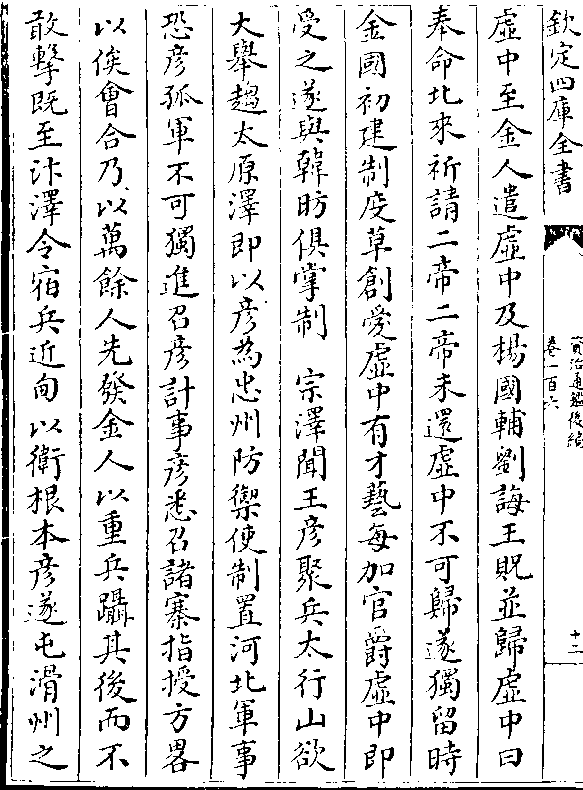 欽定四庫全書
資治通鑑後編
卷一百六
十二
虛中至金人遣虛中及楊國輔劉誨王貺並歸虛中曰
奉命北來祈請二帝二帝未還虛中不可歸遂獨留時
金國初建制度草創愛虛中有才藝每加官爵虛中即
受之遂與韓昉俱掌制 宗澤聞王彥聚兵太行山欲
大舉趨太原澤即以彥為忠州防禦使制置河北軍事
恐彥孤軍不可獨進召彥計事彥悉召諸寨指授方畧
以俟會合乃以萬餘人先發金人以重兵躡其後而不
敢擊既至汴澤令宿兵近甸以衛根本彥遂屯滑州之